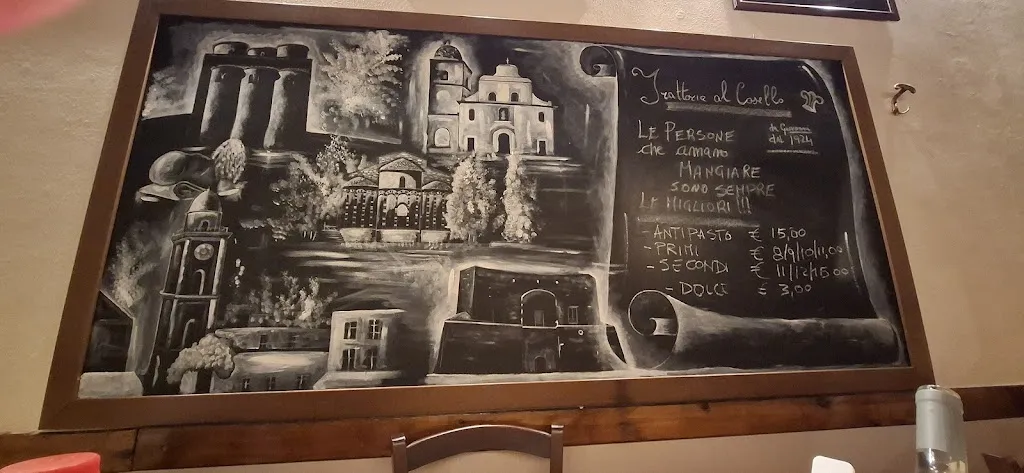 Trattoria al Casello
da Giovanni
dal 1924
LE PERSONE
che amano
MANGIARE
SONO SEMPRE
LE MIGLIORI !!!
- ANTIPASTO € 15,00
- PRIMI € 8/9/10/11,00
- SECONDI € 11/12/15,00
- DOLCE € 3,00